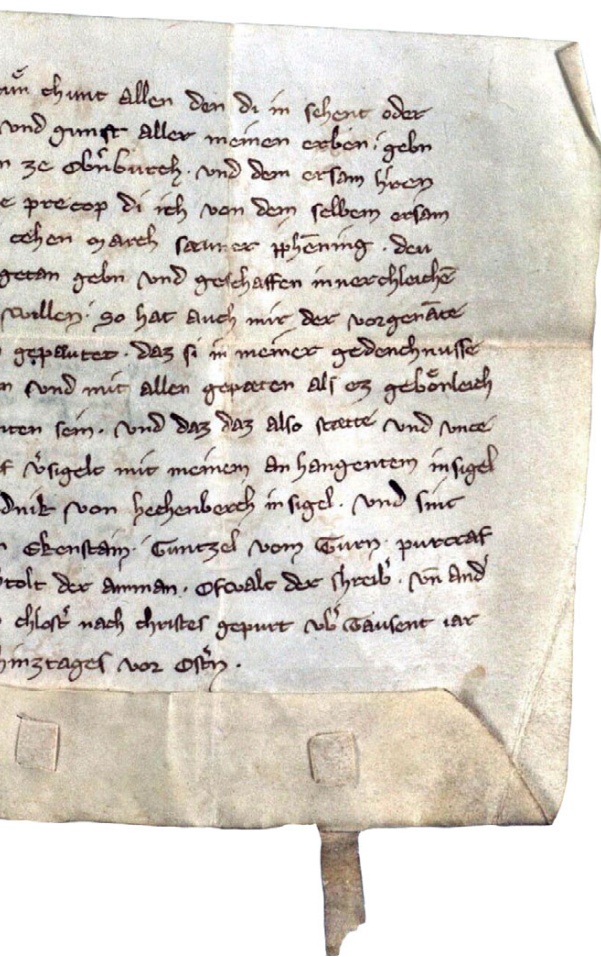 tuͤn chunt allen den di in sehent oder
vnd gunst aller meinen erben · gebn
ze Obn̄burch · vnd dem ersam h̄ren
precop di ich von dem selbem ersam
cehen march phēning · den
getan gebn vnd geschaffen innerchleichē
willen · so hat auch mir der vorgenāte
gepauter · daz si in meiner gedenchnusse
vnd mit allen gepæten als ez gebōnleich
sein · vnd daz daz also stætte vnd vnce
v̄sigelt mit meinem anhangentem insigel
von hechenberch insigel · vnd sint
Ekenstain · Guntzel vom Turn · purcraf
der amman · Oswalt der schreib̄ · vn̄ and̄
chlost̄ nach christes gepurt vb̄ Tausent iar
vor Ost̄n ·